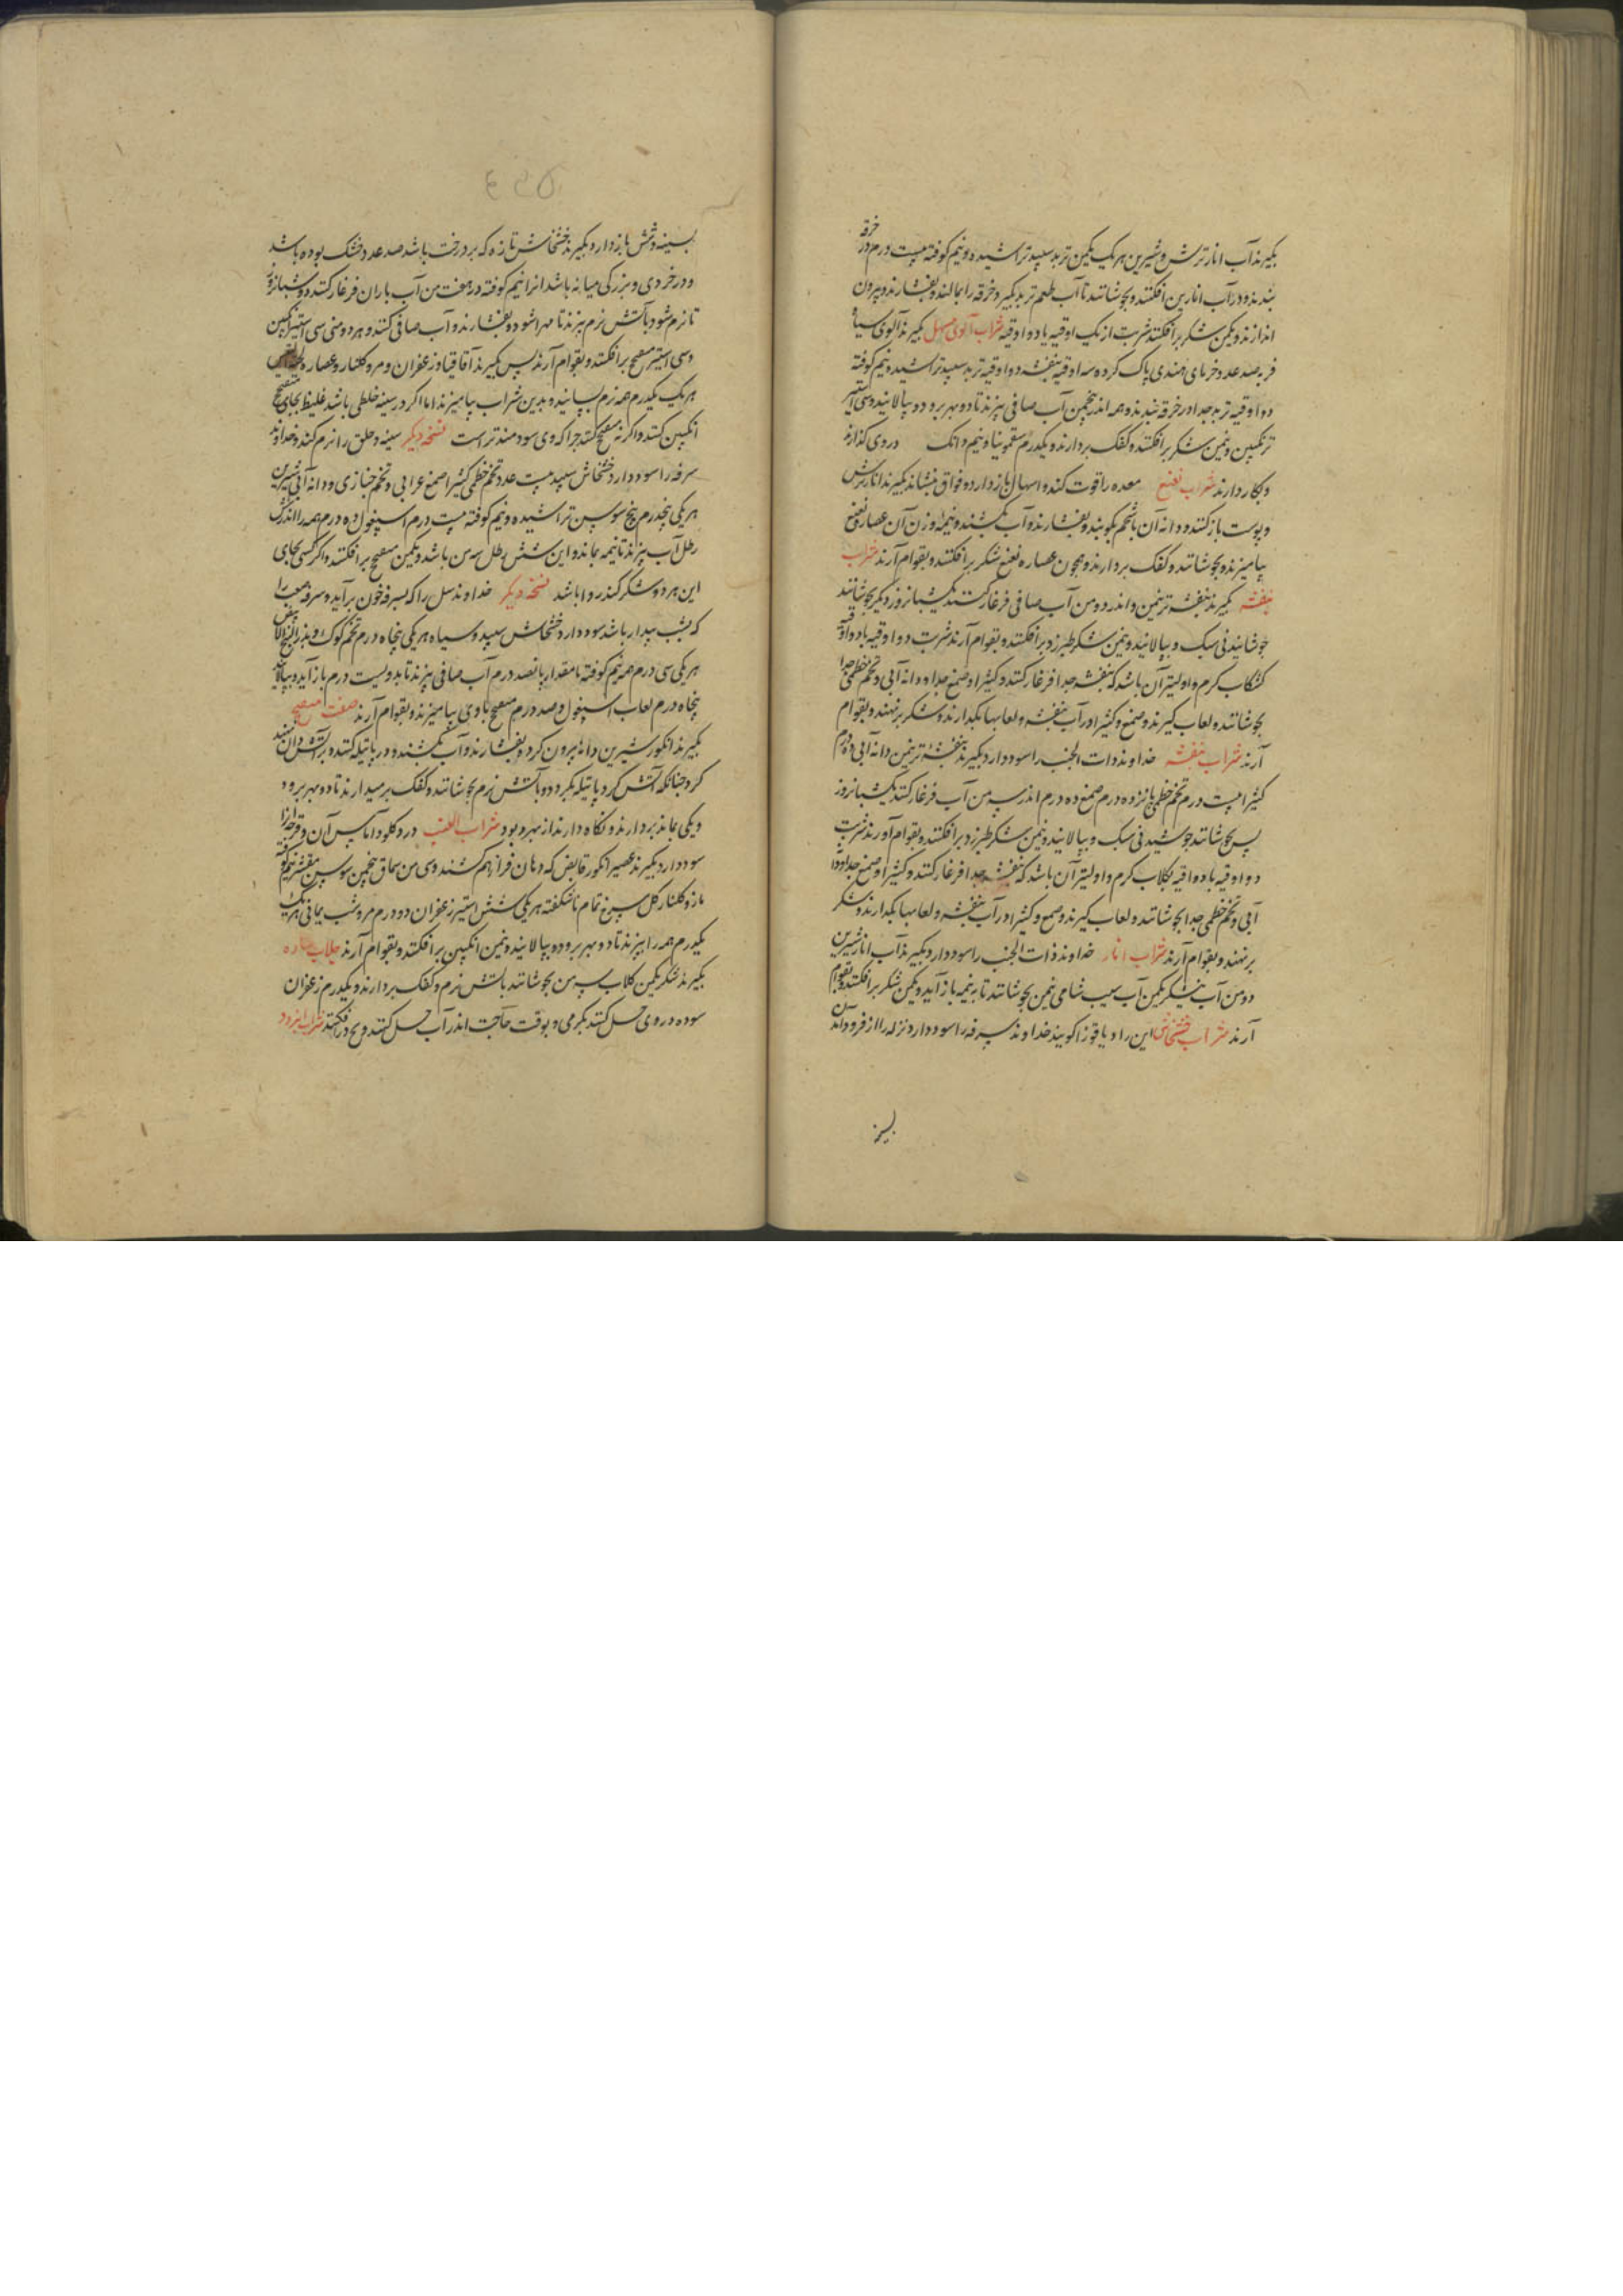 بگیرند آب انار ترش و شیرین هر یک یکمن تربد سپید تراشیده و نیم کوفته بیست درم در خرقه
بندند و در آب انارین افکنند و بجوشانند تا آب طعم تربد بگیرد و خرقه را بمالند و بفشارند و بیرون
اندازند و یکمن شکر بر افکنند شربت از یک اوقیه یا دو اوقیه شراب آلوی مسهل بگیرند آلوی سیاه
فربه صد عدد خرمای هندی پاک کرده سه اوقیه بنفشه دو اوقیه تربد سپید تراشیده و نیم کوفته
دو اوقیه تربد جدا در خرقه بندند و همه اندر پنجمن آب صافی بپزند تا دو بهر برود و بپالایند و سی استیر
ترنگبین و نیمن شکر بر افکنند و کفک بردارند و یکدرم سقمونیا و نیم دانک در وی گدازند
و بکار دارند شراب نعنع معده را قوت کند و اسهال باز دارد و فواق بنشاند بگیرند انار ترش
و پوست باز کنند و دانه آن با شحم بکوبند و بفشارند و آب بکشند و نیمه وزن آن عصاره نعنع
بیامیزند و بجوشانند و کفک بردارند و همچون عصاره نعنع شکر بر افکنند و بقوام آرند شراب
بنفشه بگیرند بنفشه تر نیمن و اندر دو من آب صافی فرغار کنند یکشبانروز و دیگر بجوشانند
جوشانیدنی سبک و بپالایند و نیمن شکر طبرزد بر افکنند و بقوام آرند شربت دو اوقیه با دو اوقیه
کشکاب گرم و اولیتر آن باشد که بنفشه جدا فرغار کنند و کثیرا و صمغ جدا و دانه آبی و تخم خطمی جدا
بجوشانند و لعاب گیرند و صمغ و کثیرا در آب بنفشه و لعابها بگدازند و شکر برنهند و بقوام
آرند شراب بنفشه خداوند ذات الجنب را سود دارد بگیرند بنفشه تر نیمن دانه آبی ده درم
کثیرا بیست درم تخم خطمی پانزده درم صمغ ده درم اندر سه من آب فرغار کنند یکشبانروز
پس بجوشانند جوشیدنی سبک و بپالایند و نیمن شکر طبرزد بر افکنند و بقوام آورند شربت
دو اوقیه با دو اوقیه جلاب گرم و اولیتر آن باشد که بنفشه جدا فرغار کنند و کثیرا و صمغ جدا و دانه
آبی و تخم خطمی جدا بجوشانند و لعاب گیرند و صمغ و کثیرا در آب بنفشه و لعابها بگدازند و شکر
برنهند و بقوام آرند شراب انار خداوند ذات الجنب را سود دارد بگیرند آب انار شیرین
دو من آب نیشکر یکمن آب سیب شامی نیمن بجوشانند تا بنیمه باز آید و یکمن شکر بر افکنند و بقوام
آرند شراب خشخاش این را دیاقوزا گویند خداوند سرفه را سود دارد و نزله را از فرود آمدن
بسینه
بسینه و شش باز دارد بگیرند خشخاش تازه که بر درخت باشد صد عدد خشک بوده باشد
و در خردی و بزرگی میانه باشد آنرا نیم کوفته در هفت من آب باران فرغار کنند دو شبانروز
تا نرم شود بآتش نرم بپزند تا مهرا شود و بفشارند و آب صافی کنند و هر دو منی سی استیر انگبین
و سی استیر میفختج بر افکنند و بقوام آرند پس بگیرند آقاقیا و زعفران و مر و گلنار و عصاره لحیة التیس
هر یک یکدرم همه نرم بسایند و بدین شراب بیامیزند اما اگر در سینه خلطی باشد غلیظ بجای میفختج
انگبین کنند و اگر نه میفختج کنند چرا که وی سودمندتر است نسخه دیگر سینه و حلق را نرم کند و خداوند
سرفه را سود دارد خشخاش سپید بیست عدد تخم خطمی کثیرا صمغ عربی و تخم خبازی و دانه آبی شیرین
هر یکی پنجدرم بیخ سوسن تراشیده و نیم کوفته بیست درم اسپغول ده درم همه را اندر شش
رطل آب بپزند تا نیمه بماند و این شش رطل سه من باشد و یکمن میفختج بر افکنند و اگر کسی بجای
این هر دو شکر کند روا باشد نسخه دیگر خداوند سل را که بسرفه خون برآید و سرفه صعب را
که بشب بیدار باشد سود دارد خشخاش سپید و سیاه هر یکی پنجاه درم تخم کوک و بذر البنج الابیض
هر یکی سی درم همه نیم کوفته با مقدار پانصد درم آب صافی بپزند تا بدویست درم باز آید و بپالایند
پنجاه درم لعاب اسپغول و صد درم میفختج با وی بیامیزند و بقوام آرند صفت میفختج
بگیرند انگور شیرین دانه بیرون کرده و بفشارند و آب بکشند و در پاتیله کنند و بر آتش دان نهند
گرد چنانکه آتش گرد پاتیله بگردد و بآتش نرم بجوشانند و کفک بر میدارند تا دو بهر برود
و یکی بماند بردارند و نگاه دارند از مهره بود شراب العنب درد گلو و آماس آن و قرحه را
سود دارد بگیرند عصیر انگور قابض که دهان فراز هم کشد ده من سماق پنجمن سوسن مقشر نیم کوفته
مازو گلنار گل سرخ تمام ناشکفته هر یکی شش استیر زعفران دو درم مر و شب یمانی هر یک
یکدرم همه را بپزند تا دو بهر برود و بپالایند و نیمن انگبین بر افکنند و بقوام آرند جلاب ساده
بگیرند شکر یکمن گلاب سه من بجوشانند بآتش نرم و کفک بردارند و یکدرم زعفران
سوده در وی حل کنند بگرمی و بوقت حاجت اندر آب حل کنند و یخ در فکنند شراب